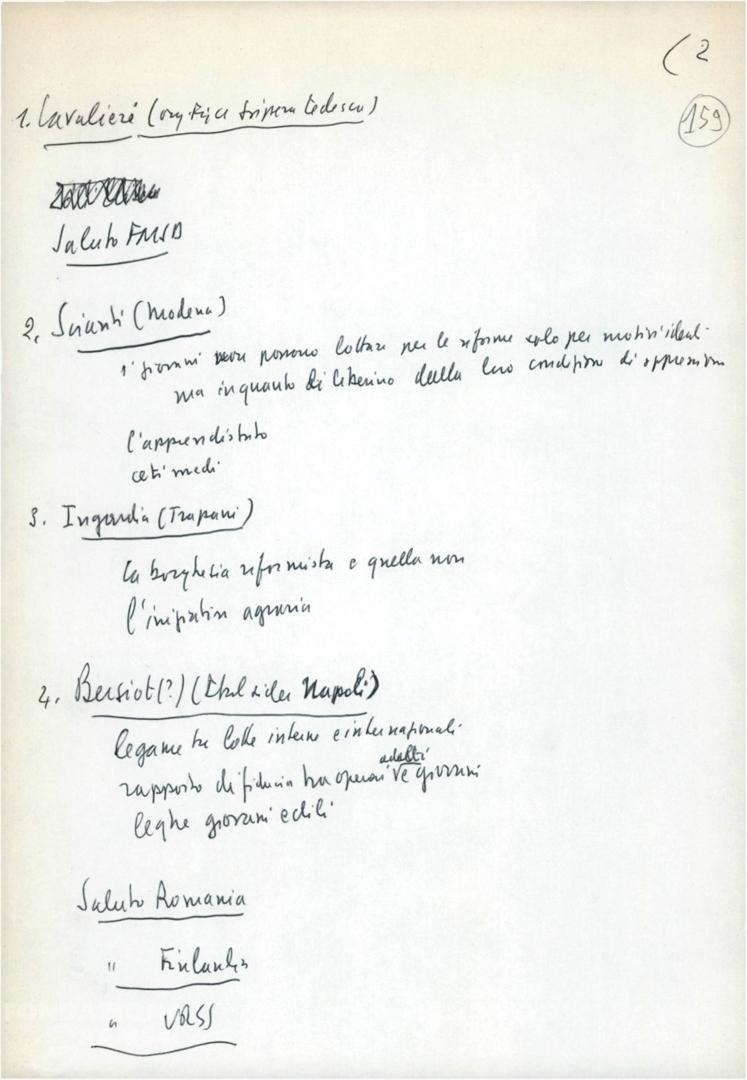 (2
159
1. Cavalieri (
Saluto FMJD
2. Scianti (Modena)
i giovani non possono lottare per le riforme solo per motivi ideali
ma in quanto si liberino dalla loro condizione di oppressione
l'apprendistato
ceti medi
3. Ingardia (Trapani)
la borghesia riformista e quella non
l'iniziativa agraria
4. Bersiot(?) (Italsider Napoli)
legame tra lotte interne e internazionali
rapporto di fiducia tra operai adulti e giovani
leghe giovani edili
Saluto Romania
" Finlandia
" URSS